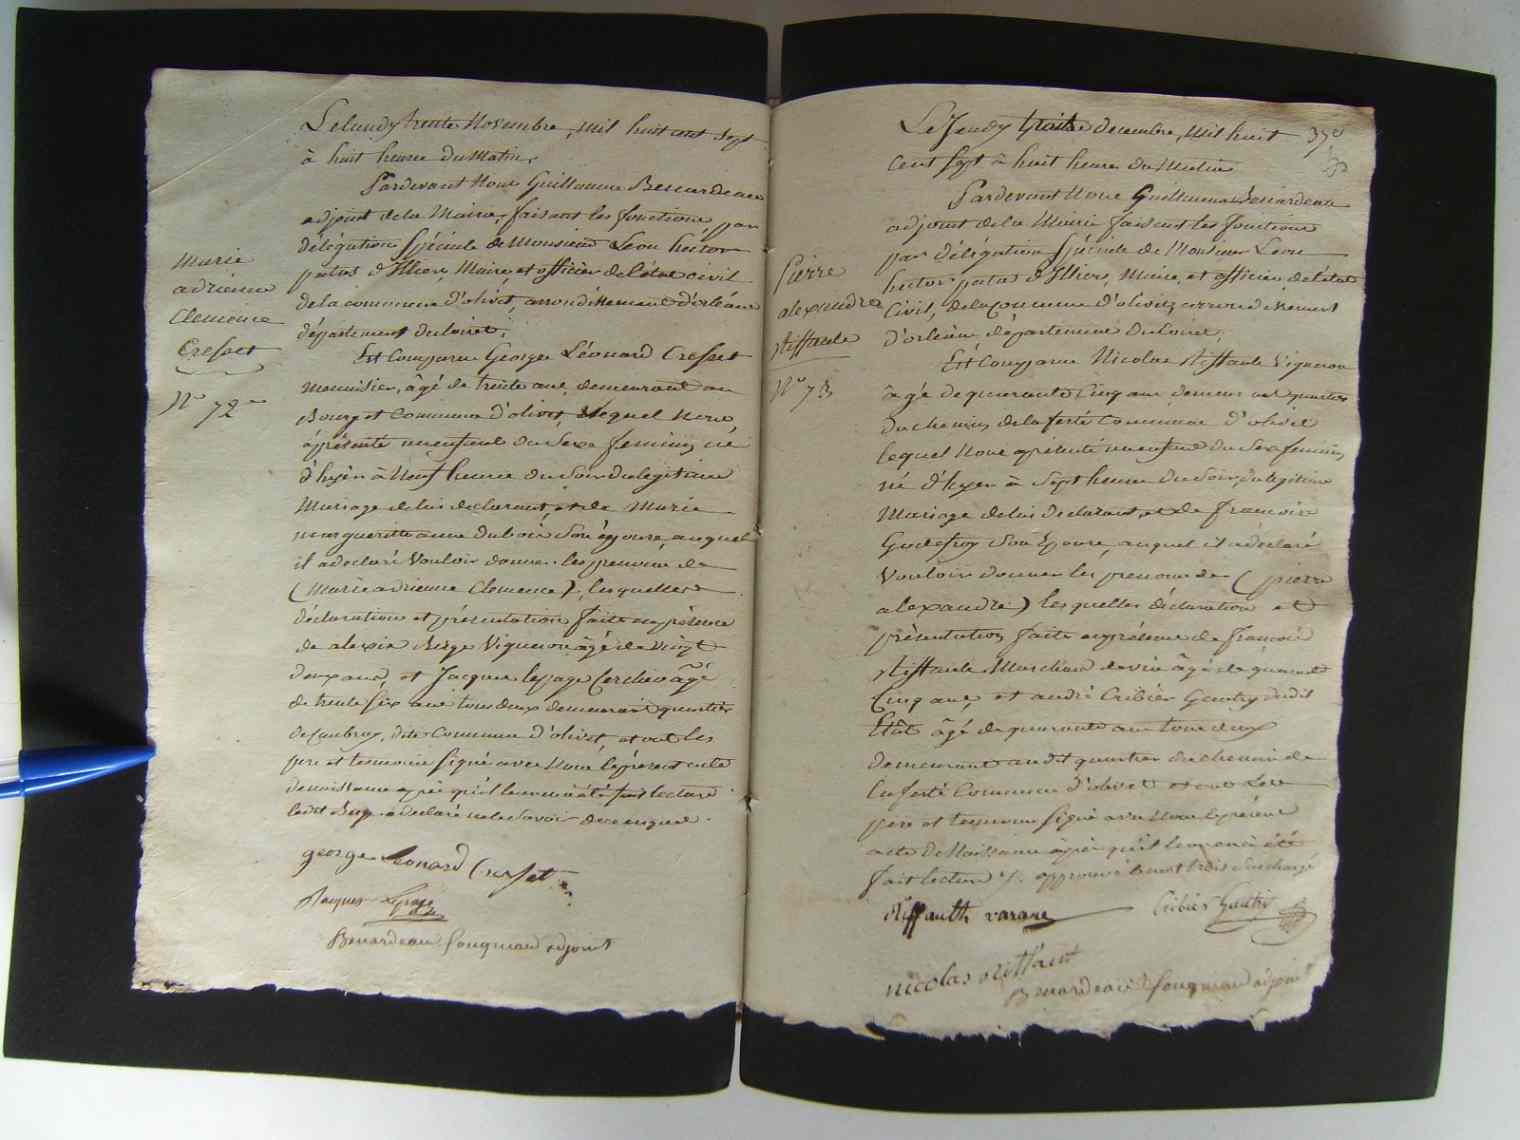 Le lundy trente Novembre, mil huit cent Sept
à huit heures du Matin,
Pardevant Nous Guillaume Benardeau
adjoint de la Mairie, faisant les fonctions, par
délégation Spéciale de Monsieur Leon hector
patas d'Illiers, Maire, et officier de l'état civil
de la commune d'olivet, arrondissement d'orléans
département du loiret,
Marie
adrienne
Clemence
Cresset
N° 72
Est Comparu George Léonard Cresset
Menuisier, âgé de trente ans, demeurant au
Bourg et Commune d'olivet, lequel Nous
a présenté un enfant du Sexe feminin, né
d'hyer à Neuf heures du Soir du légitime
Mariage de lui déclarant, et de Marie
margueritte anne dubois Son épouse, auquel
il a déclaré Vouloir donner les prenoms de
(Marie adrienne Clemence), lesquelles
déclaration et présentation faite en présence
de alexis Vigneron âgé de vingt
deux ans, et Jacques lepage Cerclier âgé
de trente Six ans tous deux demeurant quartier
de Caubray, dite Commune d'olivet, et ont les
pere et temoins Signé avec Nous le présent acte
de naissance après qu'il leur en a été fait lecture
ledit a déclaré ne le Savoir de ce enquis.
george Leonard Cresset
Jacques Lepage
Benardeau fougneau adjoint
Le Jeudy trois decembre, Mil huit
cent Sept à huit heures du Matin
37e
Pardevant Nous Guillaume Benardeau
adjoint de la Mairie faisant les fonctions
par délégation Spéciale de Monsieur Leon
hector patas d'Illiers, Maire, et officier de l'état
Civil, de la commune d'olivet, arrondissement
d'orléans, département du Loiret,
Pierre
alexandre
Riffault
N° 73
Est Comparu Nicolas Riffault Vigneron
âgé de quarante Cinq ans demeurant quartier
du chemin de la ferté Commune d'olivet
lequel Nous a présenté un enfant du Sexe feminin,
né d'hyer à Sept heures du Soir, du légitime
Mariage de lui déclarant, et de francoise
Godefroy Son Epouse, auquel il a déclaré
Vouloir donner les prenoms de (pierre
alexandre) lesquelles déclaration et
présentation faite en présence de francois
Riffault Marchand de vin âgé de quarante
Cinq ans, et andré Cribier Gautry dudit
Etat âgé de quarante ans tous deux
demeurant au dit quartier du chemin de
la ferté Commune d'olivet et ont les
pere et temoins Signé avec Nous le présent
acte de Naissance après qu'il leur en a été
fait lecture /. approuvé le mot trois Surchargé
Riffault varane
Cribier Gautry
nicolas Riffault
Benardeau fougneau adjoint